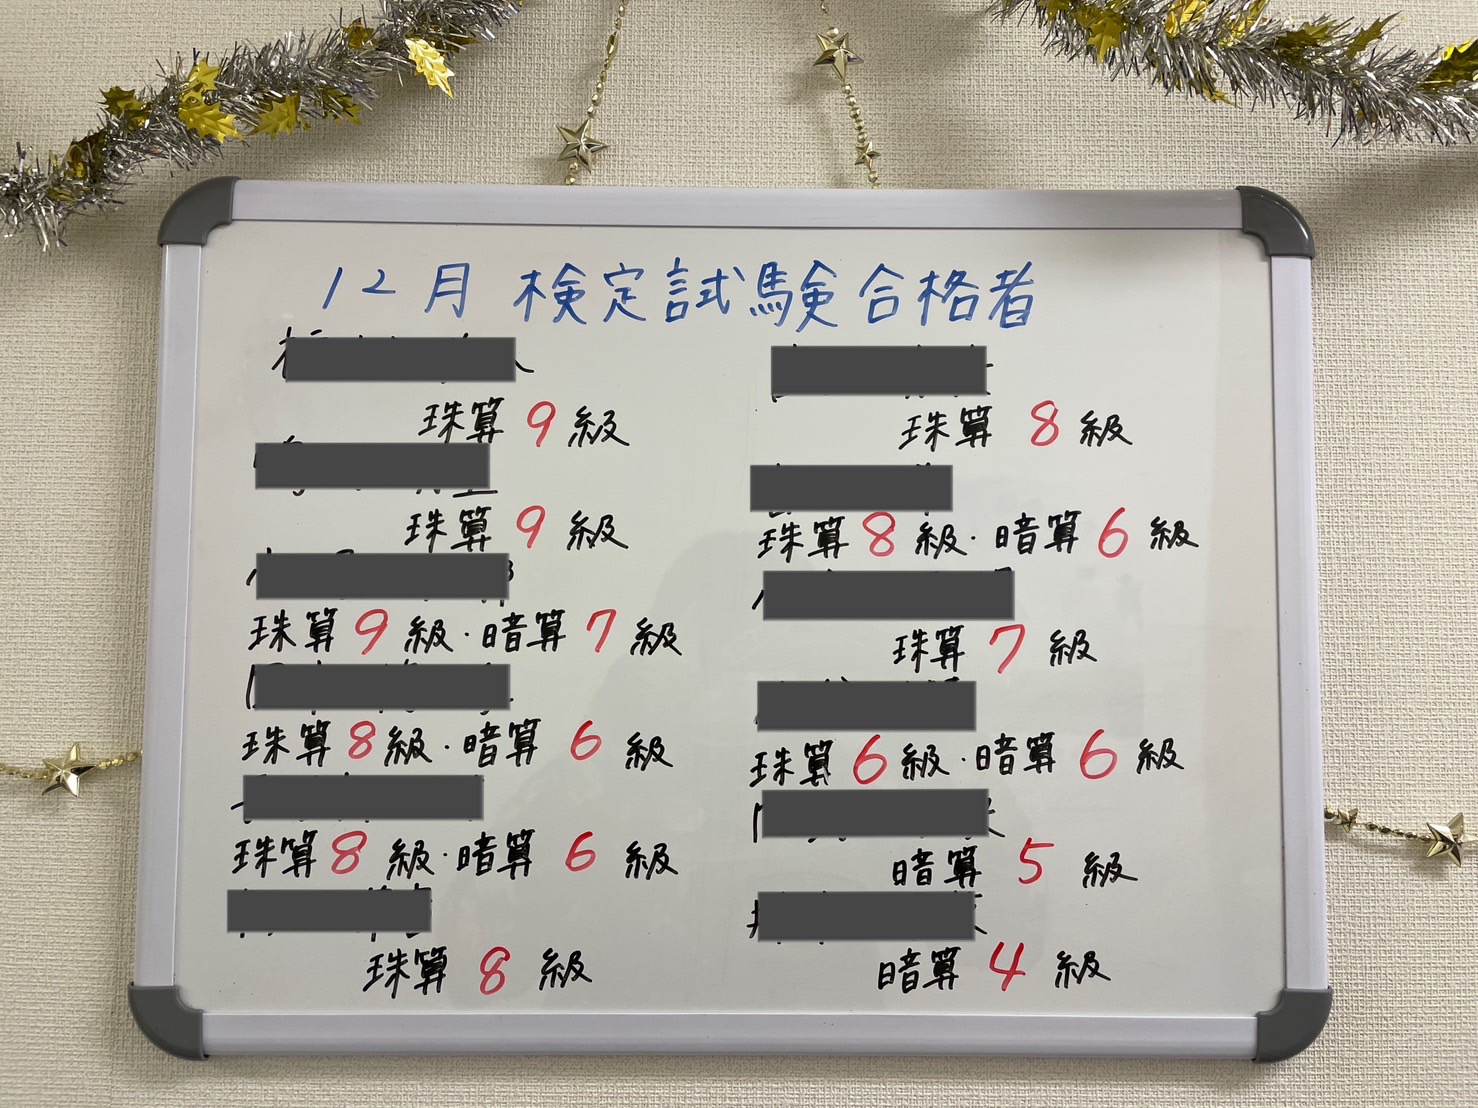 12月 検定試験合格者
珠算 9 級
珠算 9 級
珠算 9 級・暗算 7 級
珠算 8 級・暗算 6 級
珠算 8 級・暗算 6 級
珠算 8 級
珠算 8 級
珠算 8 級・暗算 6 級
珠算 7 級
珠算 6 級・暗算 6 級
暗算 5 級
暗算 4 級